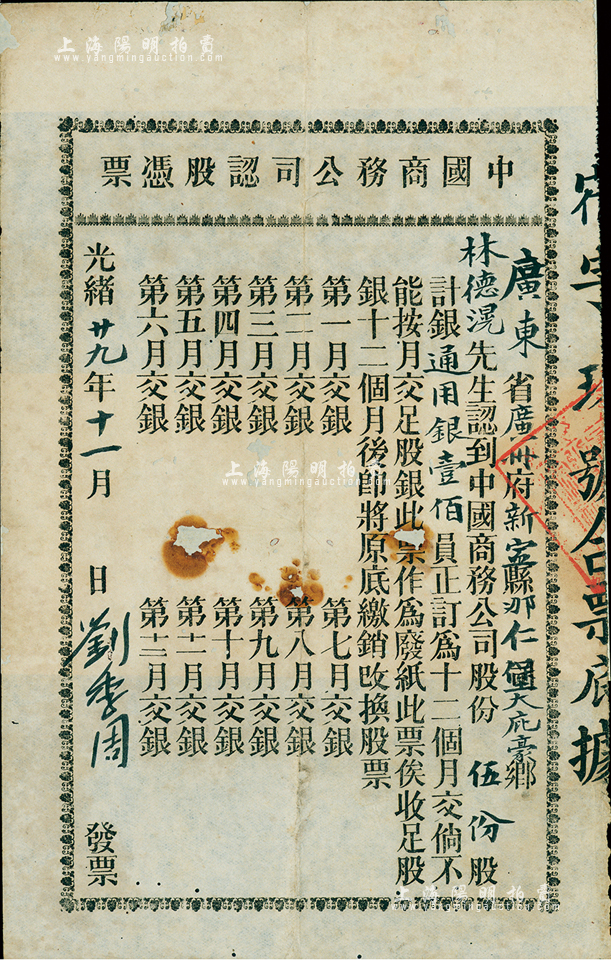 上海陽明拍賣
www.yangmingauction.com
號合票底據
中國商務公司認股憑票
廣東省廣州府新寧縣那仁
林德滉先生認到中國商務公司股份伍份股
計銀通用銀壹佰員正訂為十二個月交倘不
能按月交足股銀此票作為廢紙此票俟收足股
銀十二個月後即將原底繳銷改換股票
第一月交銀 第七月交銀
第二月交銀 第八月交銀
第三月交銀 第九月交銀
第四月交銀 第十月交銀
第五月交銀 第十一月交銀
第六月交銀 第十二月交銀
光緒廿九年十一月 日劉季周 發票
上海陽明拍賣
www.yangmingauction.com
上海陽明拍賣
www.yangmingauction.com